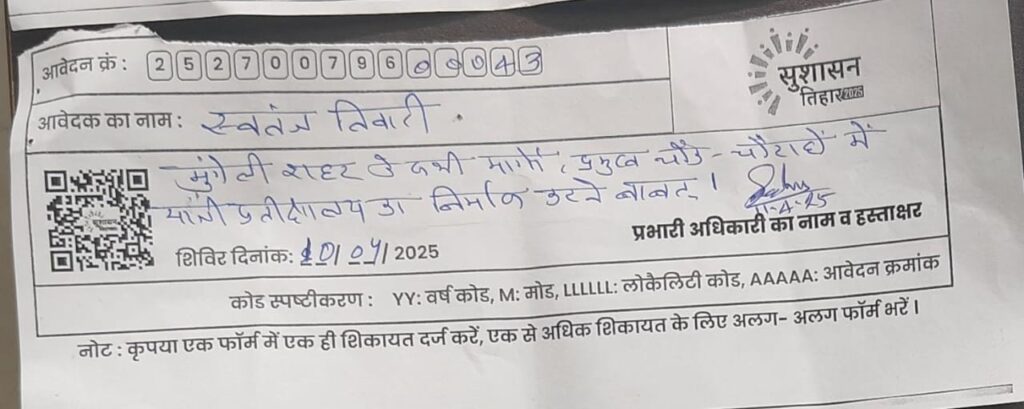 आवेदन क्रं : 2527007960043
सुशासन
तिहार 2025
आवेदक का नाम : स्वतंत्र तिवारी
मुंगेली शहर के सभी मार्गों, प्रमुख चौक - चौराहों में
यात्री प्रतीक्षालय का निर्माण करने बाबत् ।
11-4-25
प्रभारी अधिकारी का नाम व हस्ताक्षर
शिविर दिनांक: 10/04/2025
कोड स्पष्टीकरण : YY: वर्ष कोड, M: मोड, LLLLLL: लोकैलिटी कोड, AAAAA: आवेदन क्रमांक
नोट : कृपया एक फॉर्म में एक ही शिकायत दर्ज करें, एक से अधिक शिकायत के लिए अलग- अलग फॉर्म भरें ।